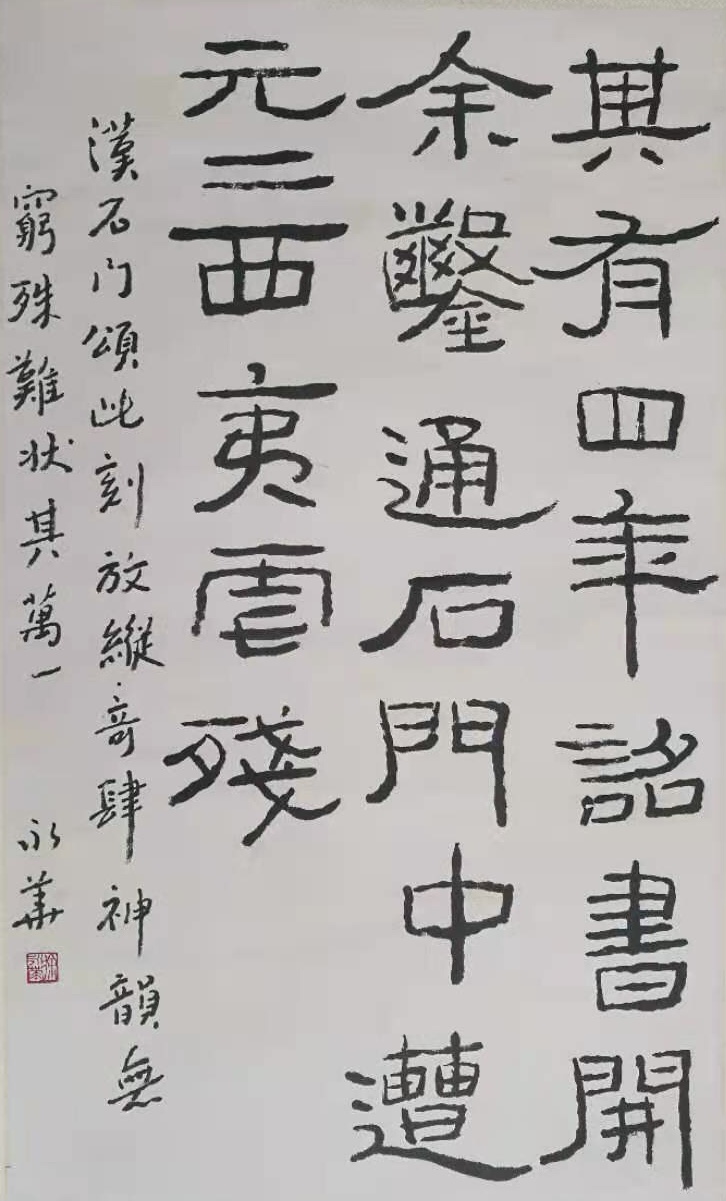 其有四年詔書開
余鑿通石門中遭
元二西夷虐殘
漢石门頌此刻放縱奇肆神韻無
窮殊難狀其萬一
永華